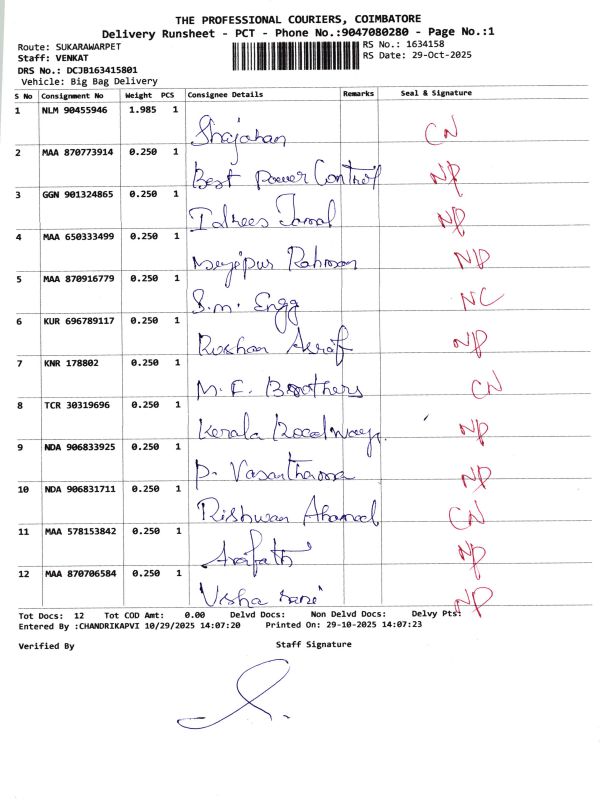 THE PROFESSIONAL COURIERS, COIMBATORE
Delivery Runsheet - PCT - Phone No.:9047080280 - Page No.:1
Route: SUKARAWARPET RS No.: 1634158
Staff: VENKAT RS Date: 29-Oct-2025
DRS No.: DCJB163415801
Vehicle: Big Bag Delivery
S No Consignment No Weight PCS Consignee Details Remarks Seal & Signature
1 NLM 90455946 1.985 1 Shajahan CN
2 MAA 870773914 0.250 1 Best Power Control NP
3 GGN 901324865 0.250 1 Idhees Jamal NP
4 MAA 650333499 0.250 1 Rahman NP
5 MAA 870916779 0.250 1 S.M. Engg NC
6 KUR 696789117 0.250 1 Roshan Asraf NP
7 KNR 178802 0.250 1 M. F. Brothers CN
8 TCR 30319696 0.250 1 Kerala Roadways NP
9 NDA 906833925 0.250 1 P. NP
10 NDA 906831711 0.250 1 Rishwan Ahamed CN
11 MAA 578153842 0.250 1 Arafath NP
12 MAA 870706584 0.250 1 Usha Rani NP
Tot Docs: 12 Tot COD Amt: 0.00 Delvd Docs: Non Delvd Docs: Delvy Pts:
Entered By :CHANDRIKAPVI 10/29/2025 14:07:20 Printed On: 29-10-2025 14:07:23
Verified By Staff Signature